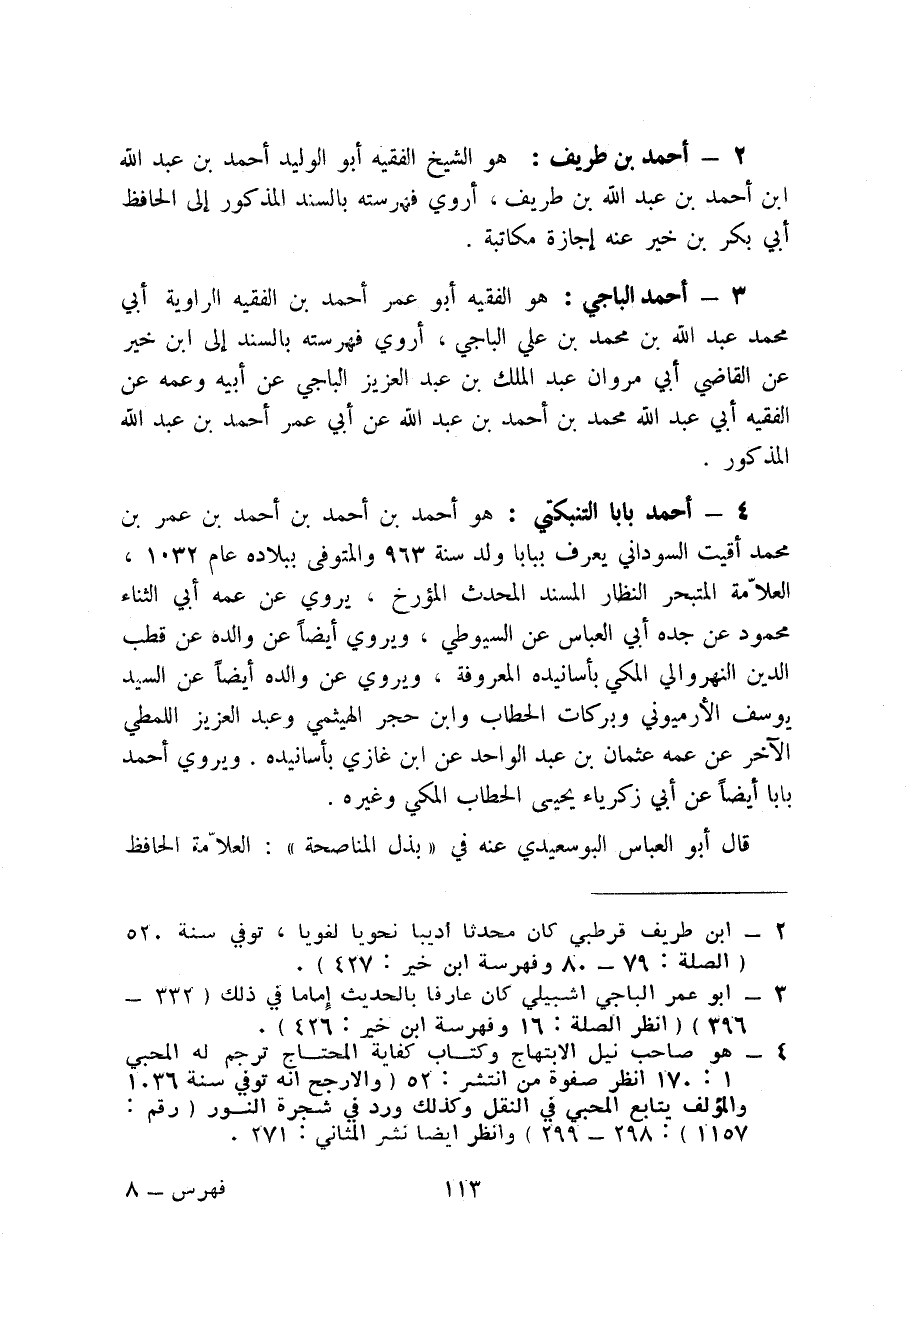 ٢ – أحمد بن طريف : هو الشيخ الفقيه أبو الوليد أحمد بن عبد الله
ابن أحمد بن عبد الله بن طريف ، أروي فهرسته بالسند المذكور إلى الحافظ
أبي بكر بن خير عنه إجازة مكاتبة .
٣ – أحمد الباجي : هو الفقيه أبو عمر أحمد بن الفقيه الراوية أبي
محمد عبد الله بن محمد بن علي الباجي ، أروي فهرسته بالسند إلى ابن خير
عن القاضي أبي مروان عبد الملك بن عبد العزيز الباجي عن أبيه وعمه عن
الفقيه أبي عبد الله محمد بن أحمد بن عبد الله عن أبي عمر أحمد بن عبد الله
المذكور .
٤ – أحمد بابا التنبكتي : هو أحمد بن أحمد بن أحمد بن عمر بن
محمد أقيت السوداني يعرف ببابا ولد سنة ٩٦٣ والمتوفى ببلاده عام ١٠٣٢ ،
العلاّمة المتبحر النظار المسند المحدث المؤرخ ، يروي عن عمه أبي الثناء
محمود عن جده أبي العباس عن السيوطي ، ويروي أيضاً عن والده عن قطب
الدين النهروالي المكي بأسانيده المعروفة ، ويروي عن والده أيضاً عن السيد
يوسف الأرميوني وبركات الحطاب وابن حجر الهيثمي وعبد العزيز اللمطي
الآخر عن عمه عثمان بن عبد الواحد عن ابن غازي بأسانيده . ويروي أحمد
بابا أيضاً عن أبي زكرياء يحيى الحطاب المكي وغيره .
قال أبو العباس البوسعيدي عنه في « بذل المناصحة » : العلاّمة الحافظ
٢ – ابن طريف قرطبي كان محدثا أديبا نحويا لغويا ، توفي سنة ٥٢٠
( الصلة : ٧٩ – ٨٠ وفهرسة ابن خير : ٤٢٧ ) .
٣ – ابو عمر الباجي اشبيلي كان عارفا بالحديث إماما في ذلك ( ٣٣٢ –
٣٩٦ ) ( انظر الصلة : ١٦ وفهرسة ابن خير : ٤٢٦ ) .
٤ – هو صاحب نيل الابتهاج وكتاب كفاية المحتاج ترجم له المحبي
١ : ١٧٠ انظر صفوة من انتشر : ٥٢ ( والارجح انه توفي سنة ١٠٣٦
والمؤلف يتابع المحبي في النقل وكذلك ورد في شجرة النور ( رقم :
١١٥٧ ) : ٢٩٨ – ٢٩٩ ) وانظر ايضا نشر المثاني : ٢٧١ .
١١٣
فهرس – ٨